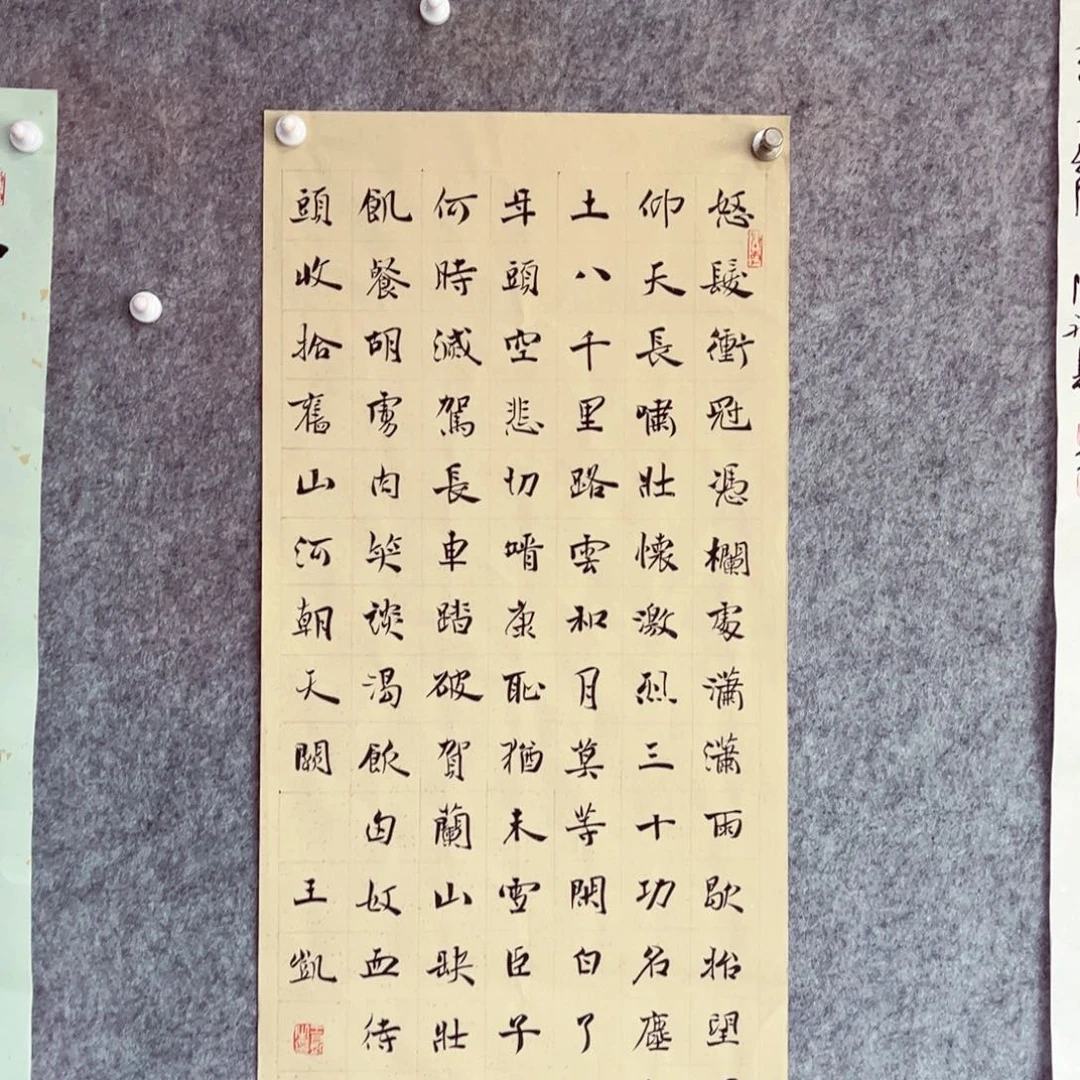 怒髮衝冠憑欄處瀟瀟雨歇抬望
仰天長嘯壯懷激烈三十功名塵
土八千里路雲和月莫等閑白了
年頭空悲切靖康恥猶未雪臣子
何時滅駕長車踏破賀蘭山缺壯
飢餐胡虜肉笑談渴飲匈奴血待
頭收拾舊山河朝天闕
王凱